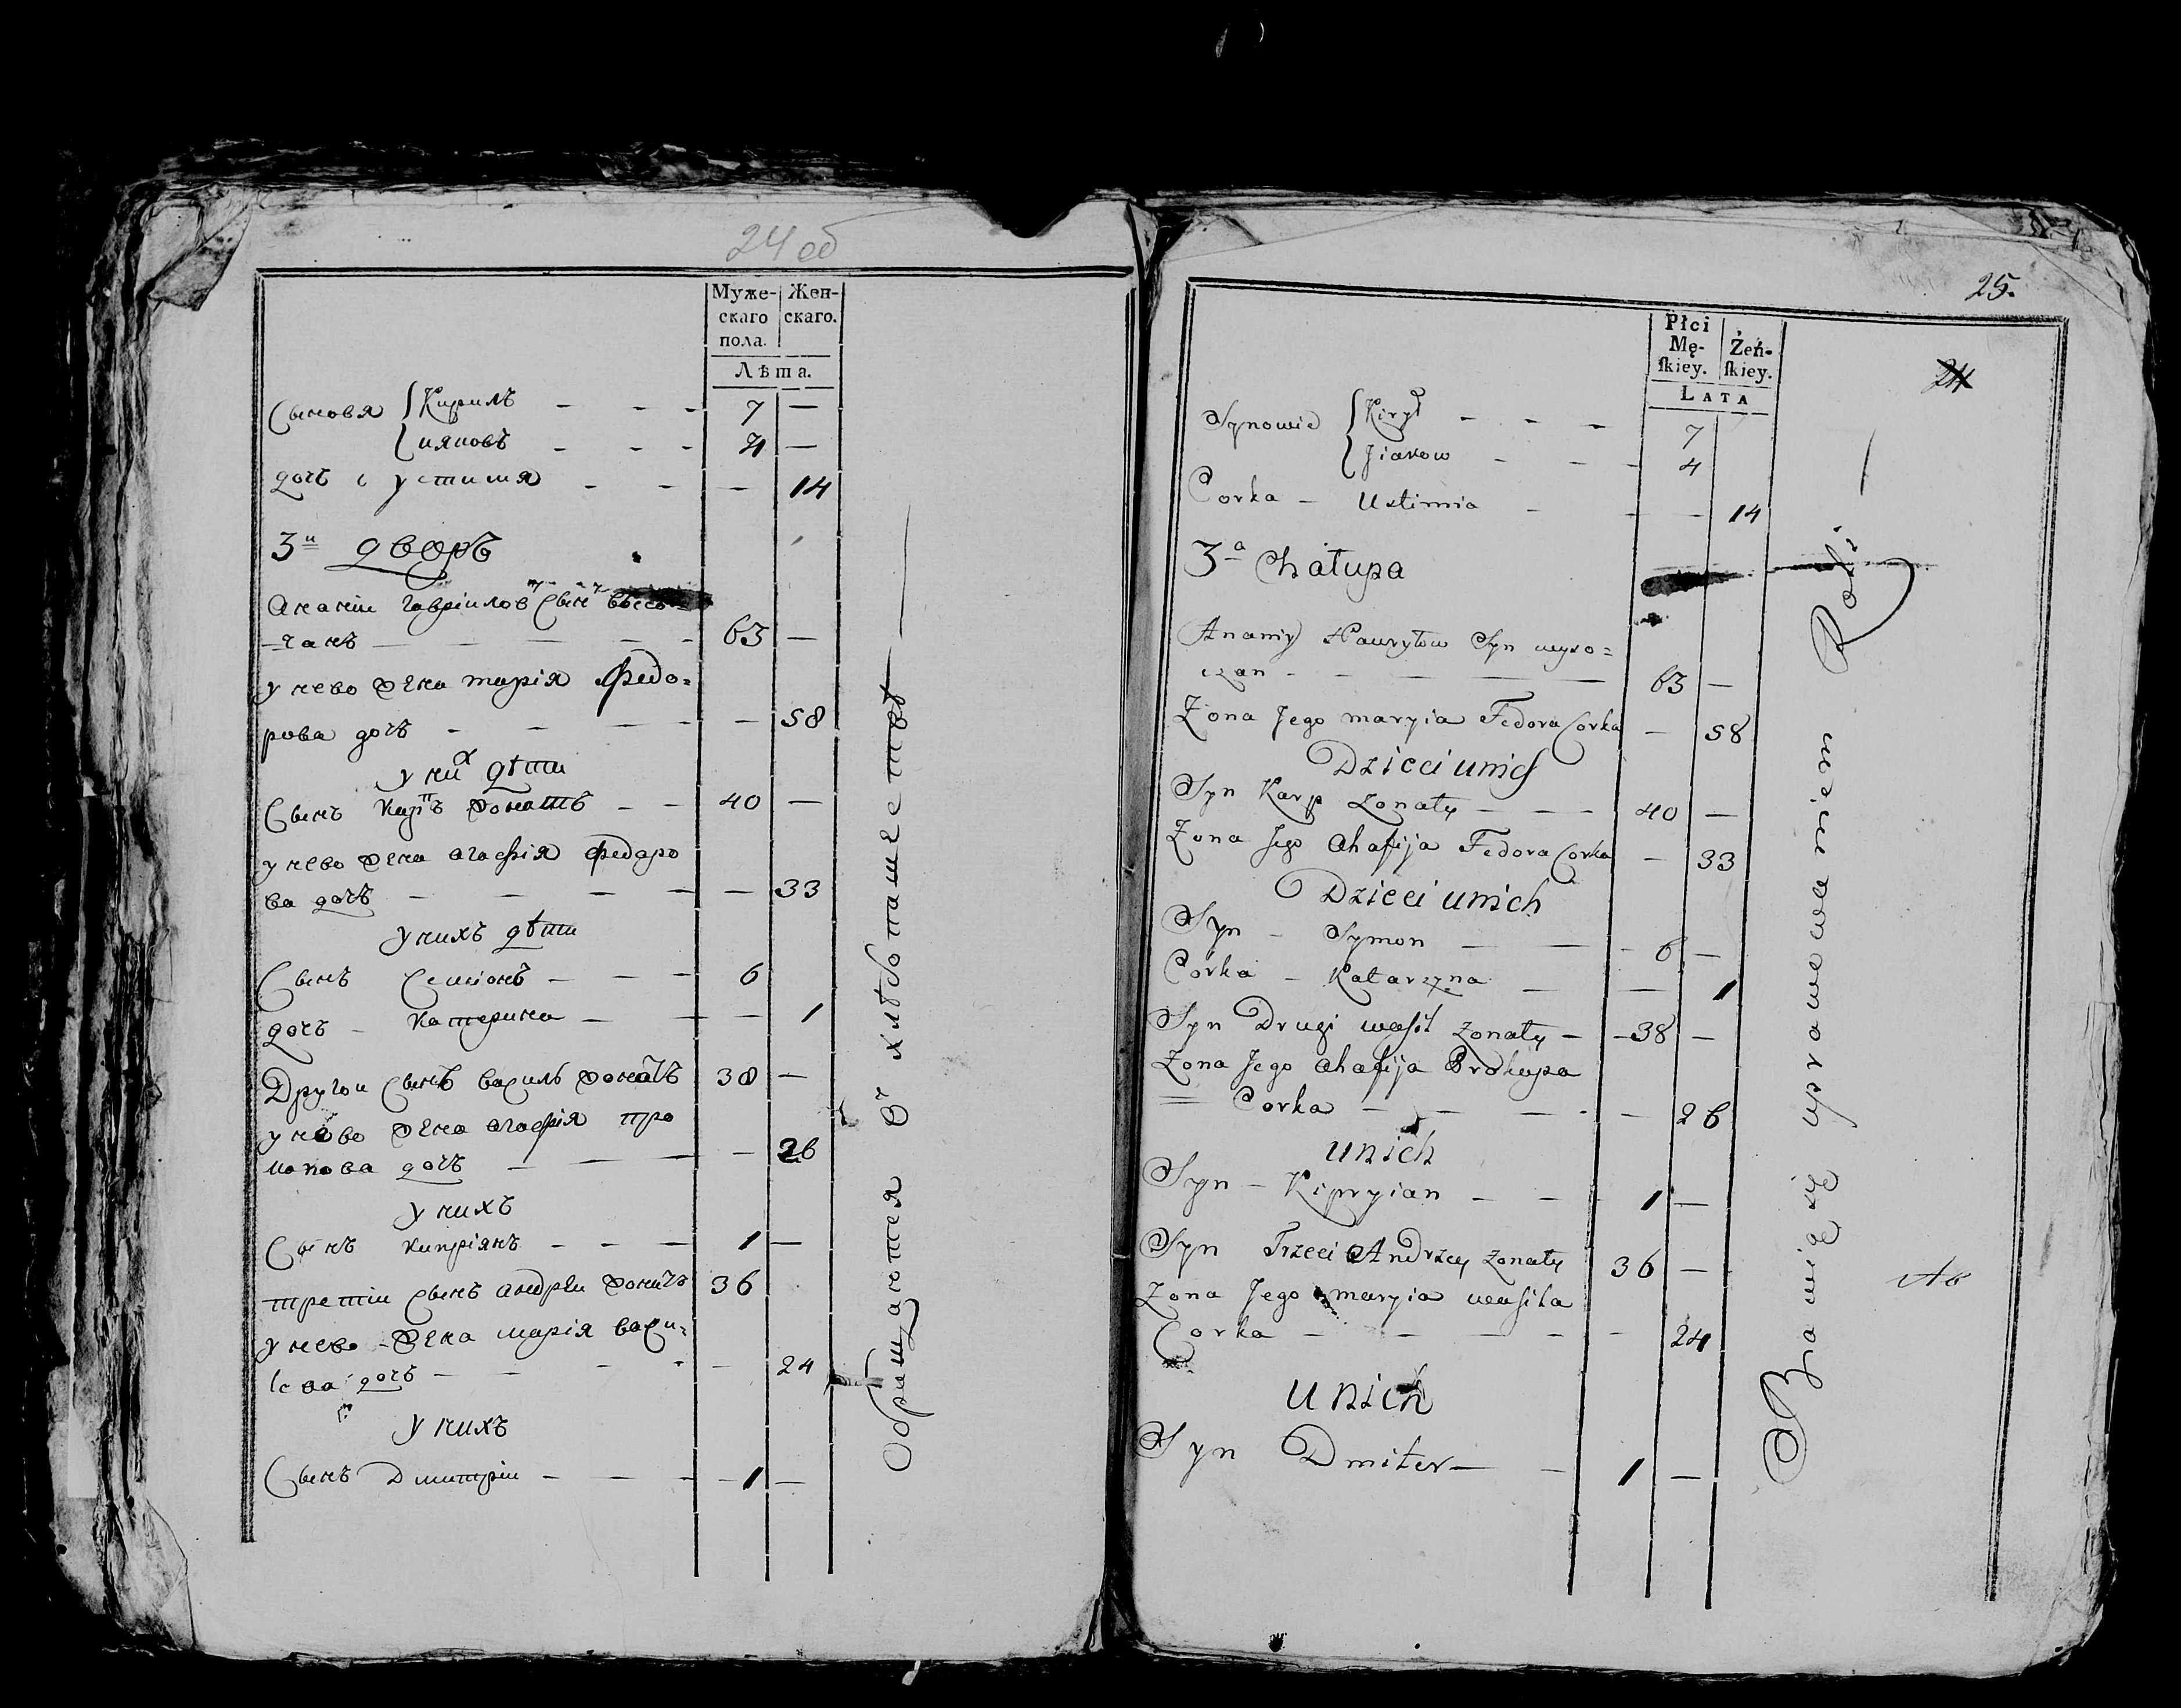 24 об
Муже-
скаго
пола.
Жен-
скаго.
Лѣта.
Сыновя { Кирилъ - - - 7 —
{ ияковъ - - - 4 —
дочь устимія - - — 14
3й дворъ
Ананіи гавріиловъ сынъ высо-
-чанъ — — — — 63 —
у нево жена марія федо=
рова дочь - - — - — 58
у них дѣти
Сынъ карпъ жонатъ - — 40 —
у нево жена агафія федаро
ва дочь — — — — — 33
у нихъ дѣти
Сынъ Семіонъ — — — 6
дочь - катерина — — — 1
Другои сынъ василь жонатъ 38 —
у нево жена агафія про
копова дочь — — — — 26
у нихъ
Сынъ кипріянъ — — — 1 —
третіи сынъ андреи жонатъ 36
у нево жена марія васи=
лева дочь — — - - — 24
у нихъ
Сынъ Дмитріи — — — 1 —
Обращаются въ хлѣбопашествѣ —
25.
24
Płci
Mę-
ſkiey.
Żeń-
ſkiey.
LATA
Synowie { Kirył - - - 7
{ Jiakow - - - 4
Corka - Ustimia - - - 14
3a Chałupa
Anamiy Hawryłow Syn wyso=
czan - - — — — 63 —
Zona Jego maryia Fedora Corka — 58
Dzieci unich
Syn Karp zonaty — — - 40 —
Zona Jego Ahafija Fedora Corka — 33
Dzieci unich
Syn - Symon — — - 6 —
Córka - Katarzyna — — 1
Syn Drugi wasil zonaty — -38 —
Zona Jego Ahafija Prokopa
= Corka — — — - — 26
unich
Syn - Kipryian — — - 1 —
Syn Trzeci Andrzey zonaty 36 —
Zona Jego maryia wasila
Corka — - — - - 24
unich
Syn Dmiter — — 1 —
Bawią się uprawowaniem Roli —